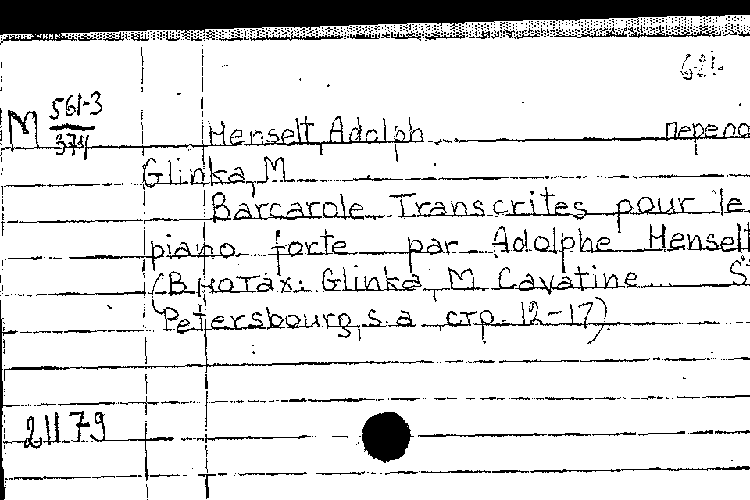 621.
М 561-3
374
Henselt, Adolph перело
Glinka, M
Barcarole Transcrites pour le
piano forte par Adolphe Henselt
(В нотах: Glinka, M. Cavatine S
Petersbourg, s.a. стр. 12-17)
21179